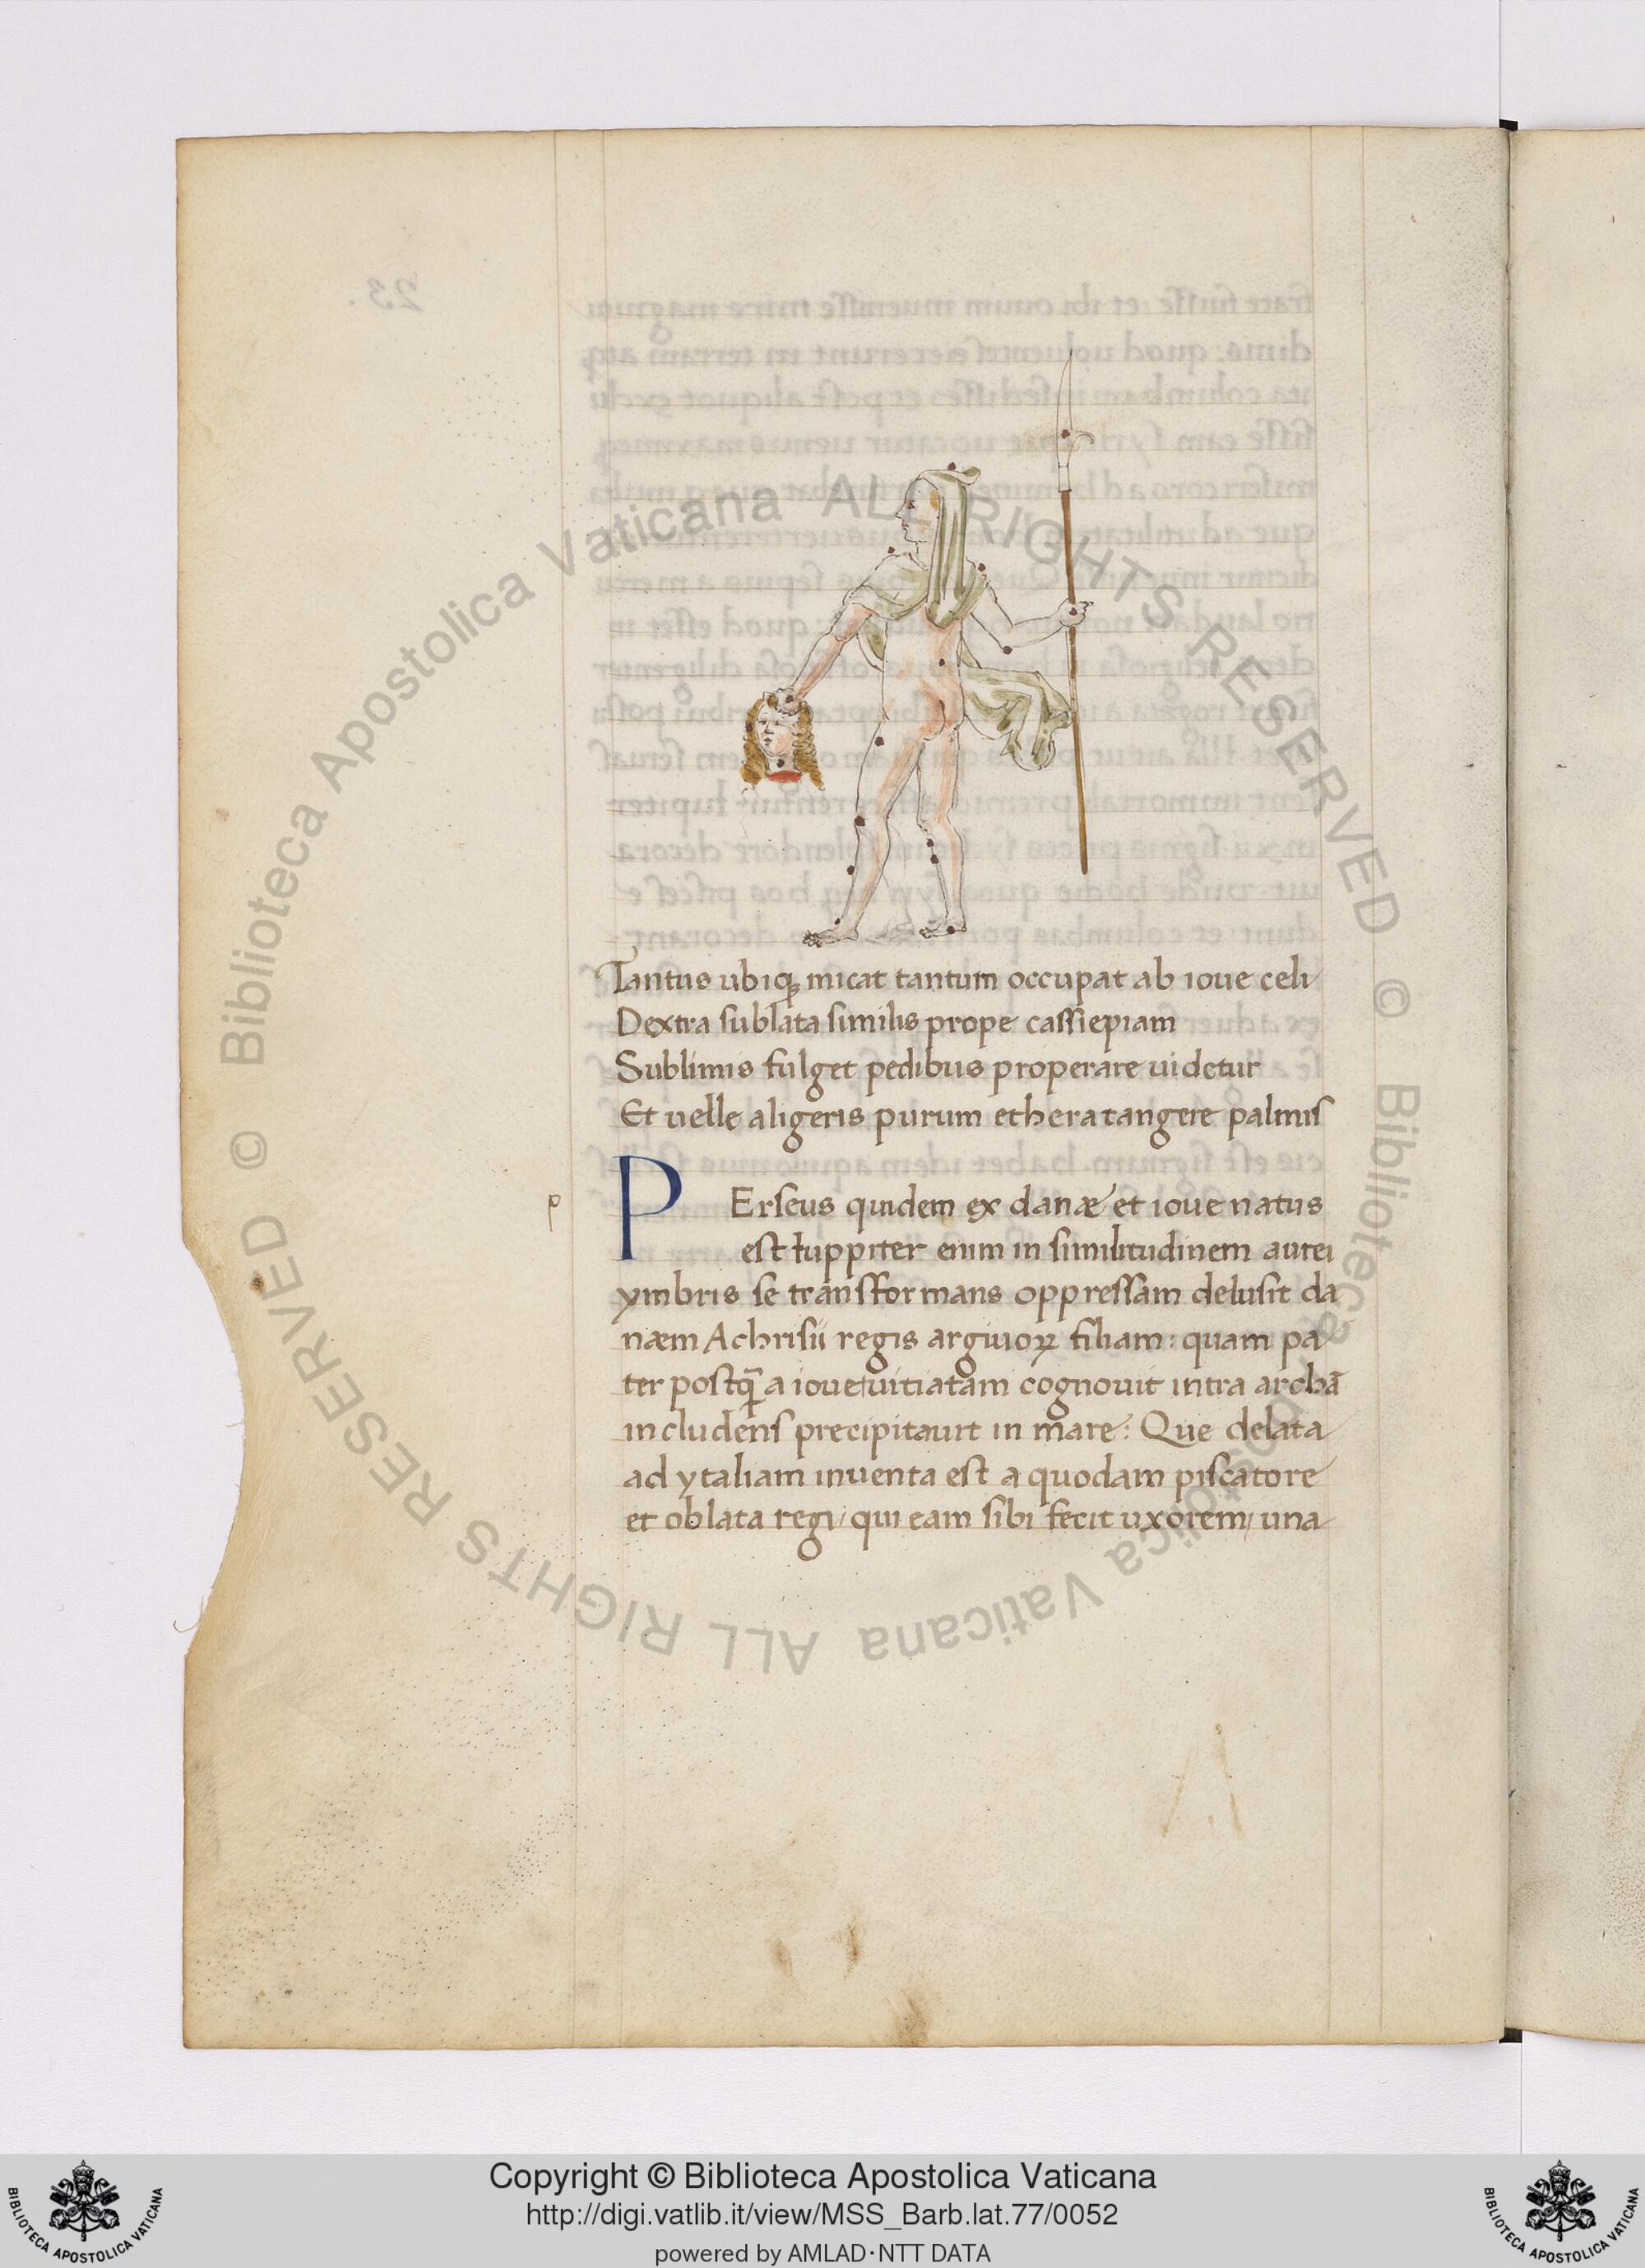 Tantus ubiq; micat tantum occupat ab ioue celi
Dextra sublata similis prope cassiepiam
Sublimis fulget pedibus properare uidetur
Et uelle aligeris purum ethera tangere palmis
p
PErseus quidem ex danæ et ioue natus
est Iuppiter enim in similitudinem aurei
ymbris se transformans oppressam delusit da
næm Achrisii regis argiuoꝝ filiam: quam pa
ter postq̃ a ioue uitiatam cognouit intra archā
includens precipitauit in mare: Que delata
ad ytaliam inuenta est a quodam piscatore
et oblata regi/ qui eam sibi fecit uxorem/ una
© Biblioteca Apostolica Vaticana ALL RIGHTS RESERVED
© Biblioteca Apostolica Vaticana ALL RIGHTS RESERVED
Copyright © Biblioteca Apostolica Vaticana
http://digi.vatlib.it/view/MSS_Barb.lat.77/0052
powered by AMLAD·NTT DATA
BIBLIOTECA APOSTOLICA VATICANA
BIBLIOTECA APOSTOLICA VATICANA